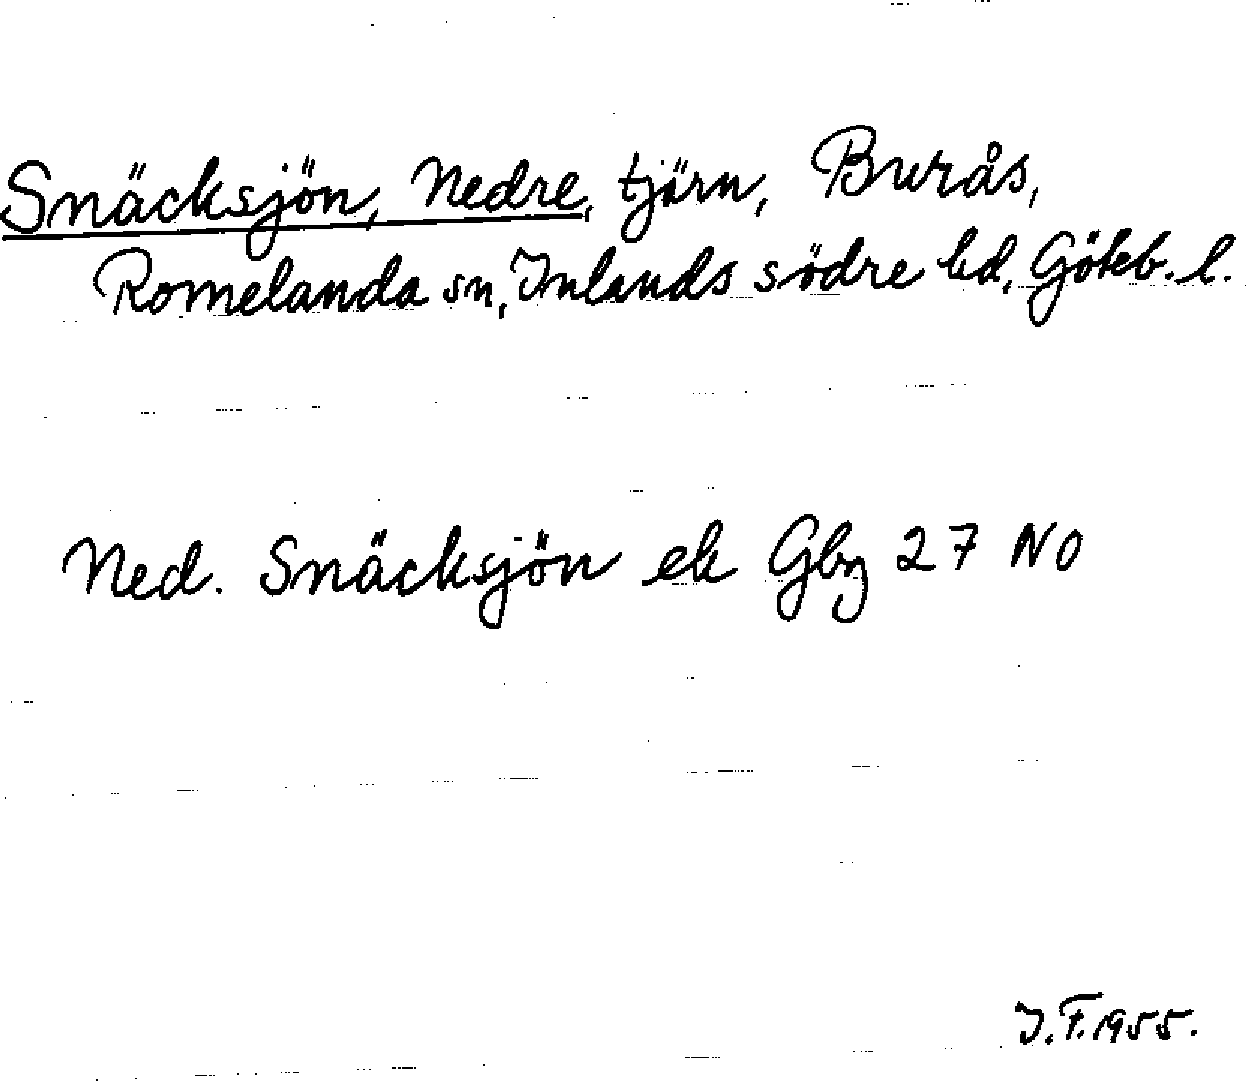 Snäcksjön, Nedre, tjärn, Burås,
Romelanda sn, Inlands södre hd, Göteb. l.
Ned. Snäcksjön ek Gbg 27 NO
J.F. 1955.